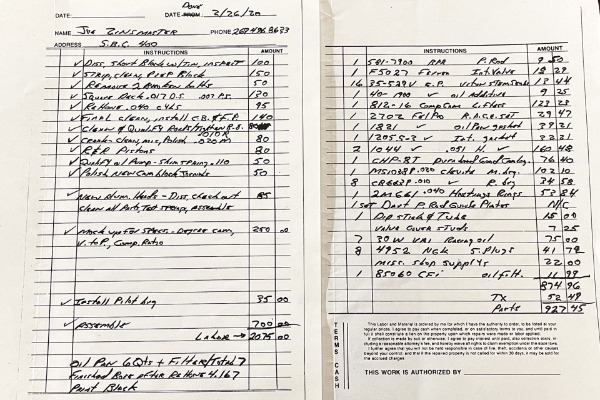 Done
DATE FROM DATE 2/26/20
NAME Joe Zinsmaster PHONE
ADDRESS S.B.C. 400
INSTRUCTIONS AMOUNT
✓ Diss, Short Block w/Tim, inspect 100
✓ Strip, clean, Prep Block 150
✓ Remove 2 Broken bolts 50
✓ Square Deck .017 D.S. .007 P.S. 130
✓ ReHone .040 cyls 95
✓ Final clean, install C.B. & F.P. 140
✓ Clean & Qualify Rods/
✓ Crank - clean, mic, Polish .020M 80
✓ R&R Pistons 80
✓ Qualify oil Pump - Shim spring .110 50
✓ Polish new Cam block Thends 50
✓ New Alum. Heads - Diss, check out 85
Clean all Parts, Test springs, assemble
✓ Mock up For Specs. - Degree cam, 250 00
V. to P., Comp. Ratio
✓ Install Pilot brg 35 00
✓ Assemble 700 00
Labor → 2075 00
Oil Pan 6 Qts + Filter/Total 7
Finished Bore after ReHone 4.167
Paint Block
INSTRUCTIONS AMOUNT
1 501-7900 P. Rod 9 50
1 F5027 Int. Valve 18 29
16 35-529V 13 44
1 oil additive 9 25
1 812-16 Comp Cam Lifters 123 23
1 2702 FelPro R.A.C.G. set 29 47
1 1821 ✓ oil Pan gasket 39 21
1 1205 S-3 ✓ Int. gasket 32 21
2 1044 ✓ .051 H. ✓ 160 48
1 76 40
1 MS1038P .020 Clevite M. brg. 102 10
8 CB663P .010 R. brg 34 58
1 2M661 .040 Hastings Rings 53 84
1 set Dart P. Rod Guide Plates N/C
1 Dip stick & Tube 15 00
Valve Cover Studs 7 25
7 30W VR1 Racing oil 75 00
8 4952 NGK S. Plugs 41 72
misc. shop supplys 22 00
1 85060 CFI oil filt. 11 99
874 96
TX 52 49
Parts 927 45
TERMS CASH
This Labor and Material is ordered by me or I have the authority to order, to be listed at your
regular prices. I agree to pay cash when completed, or on satisfactory terms to you, and until paid in
full it shall constitute a lien on the property upon which repairs were made or labor applied.
If collection is made by suit or otherwise, I agree to pay interest until paid, also collection costs, in-
cluding a reasonable attorney's fee, and hereby waive all rights to claim exemption under the state laws.
I further agree that you will not be held responsible in case of fire, theft, accidents or other causes
beyond your control; and that if the repaired property is not called for within 30 days, it may be sold for
the accrued charges.
THIS WORK IS AUTHORIZED BY